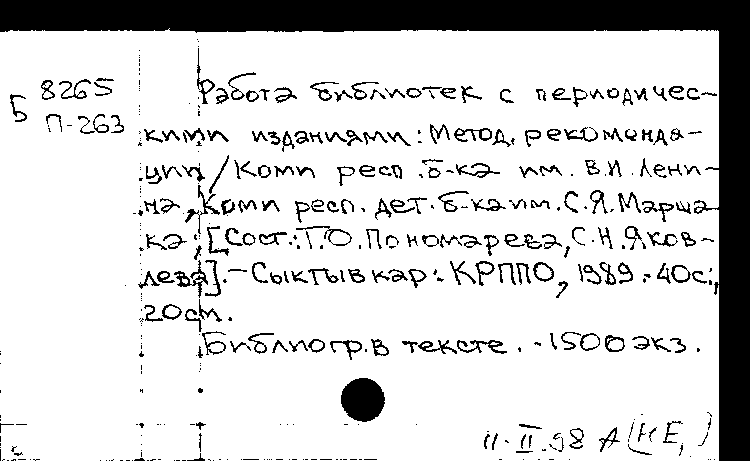 Б 8265
П-263
Работа библиотек с периодичес-
кими изданиями: Метод. рекоменда-
ции / Коми респ. б-ка им. В.И. Лени-
на, Коми респ. дет. б-ка им. С.Я. Марша-
ка; [Сост.: Т.О. Пономарева, С.Н. Яков-
лева]. - Сыктывкар: КРППО, 1989. - 40с.;
20см.
Библиогр. в тексте. - 1500 экз.
11.II.98 А (НЕ,)